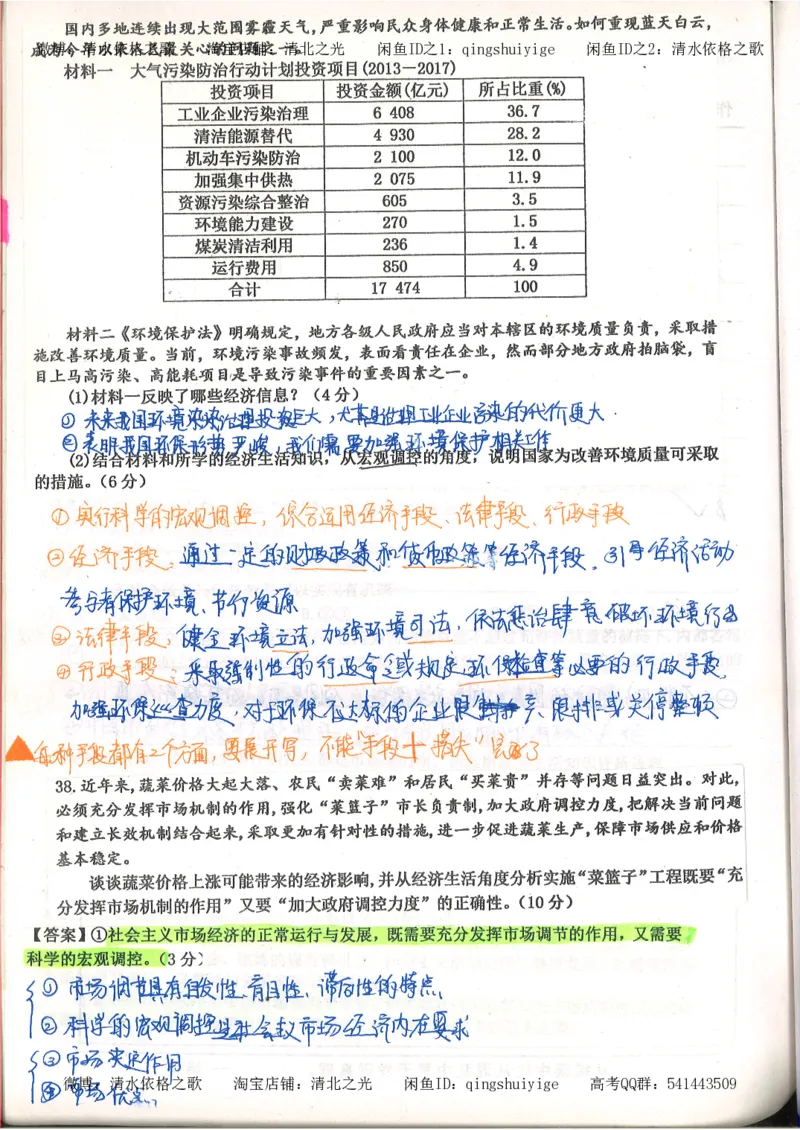 国内多地连续出现大范围雾霾天气,严重影响民众身体健康和正常生活。如何重现蓝天白云,
清北之光 闲鱼ID之1:qingshuiyige 闲鱼ID之2:清水依格之歌
材料一 大气污染防治行动计划投资项目(2013—2017)
投资项目 投资金额(亿元) 所占比重(%)
工业企业污染治理 6 408 36.7
清洁能源替代 4 930 28.2
机动车污染防治 2 100 12.0
加强集中供热 2 075 11.9
资源污染综合整治 605 3.5
环境能力建设 270 1.5
煤炭清洁利用 236 1.4
运行费用 850 4.9
合计 17 474 100
材料二《环境保护法》明确规定,地方各级人民政府应当对本辖区的环境质量负责,采取措
施改善环境质量。当前,环境污染事故频发,表面看责任在企业,然而部分地方政府拍脑袋,盲
目上马高污染、高能耗项目是导致污染事件的重要因素之一。
(1)材料一反映了哪些经济信息?(4分)
①未来我国环境污染治理投资巨大,尤其是治理工业企业污染的代价更大.
②表明我国环保形势严峻,我们需要加强环境保护相关工作
(2)结合材料和所学的经济生活知识,从宏观调控的角度,说明国家为改善环境质量可采取
的措施。(6分)
①实行科学的宏观调控,综合运用经济手段、法律手段、行政手段
②经济手段:通过一定的财政政策和货币政策等经济手段,引导经济活动
参与者保护环境、节约资源
③法律手段:健全环境立法,加强环境司法,依法惩治肆意破坏环境行为
④行政手段:采取强制性的行政命令或规定环保检查等必要的行政手段,
加强环保巡查力度,对于环保不达标的企业限产、限排或关停整顿
每种手段都有2个方面,要展开写,不能"手段+措失"完了
38.近年来,蔬菜价格大起大落、农民“卖菜难”和居民“买菜贵”并存等问题日益突出。对此,
必须充分发挥市场机制的作用,强化“菜篮子”市长负责制,加大政府调控力度,把解决当前问题
和建立长效机制结合起来,采取更加有针对性的措施,进一步促进蔬菜生产,保障市场供应和价格
基本稳定。
谈谈蔬菜价格上涨可能带来的经济影响,并从经济生活角度分析实施“菜篮子”工程既要“充
分发挥市场机制的作用”又要“加大政府调控力度”的正确性。(10分)
【答案】①社会主义市场经济的正常运行与发展,既需要充分发挥市场调节的作用,又需要
科学的宏观调控。(3分)
①市场调节具有自发性、盲目性、滞后性的特点
②科学的宏观调控是社会主义市场经济内在要求
③市场决定作用
④市场
微博:清水依格之歌 淘宝店铺:清北之光 闲鱼ID:qingshuiyige 高考QQ群:541443509